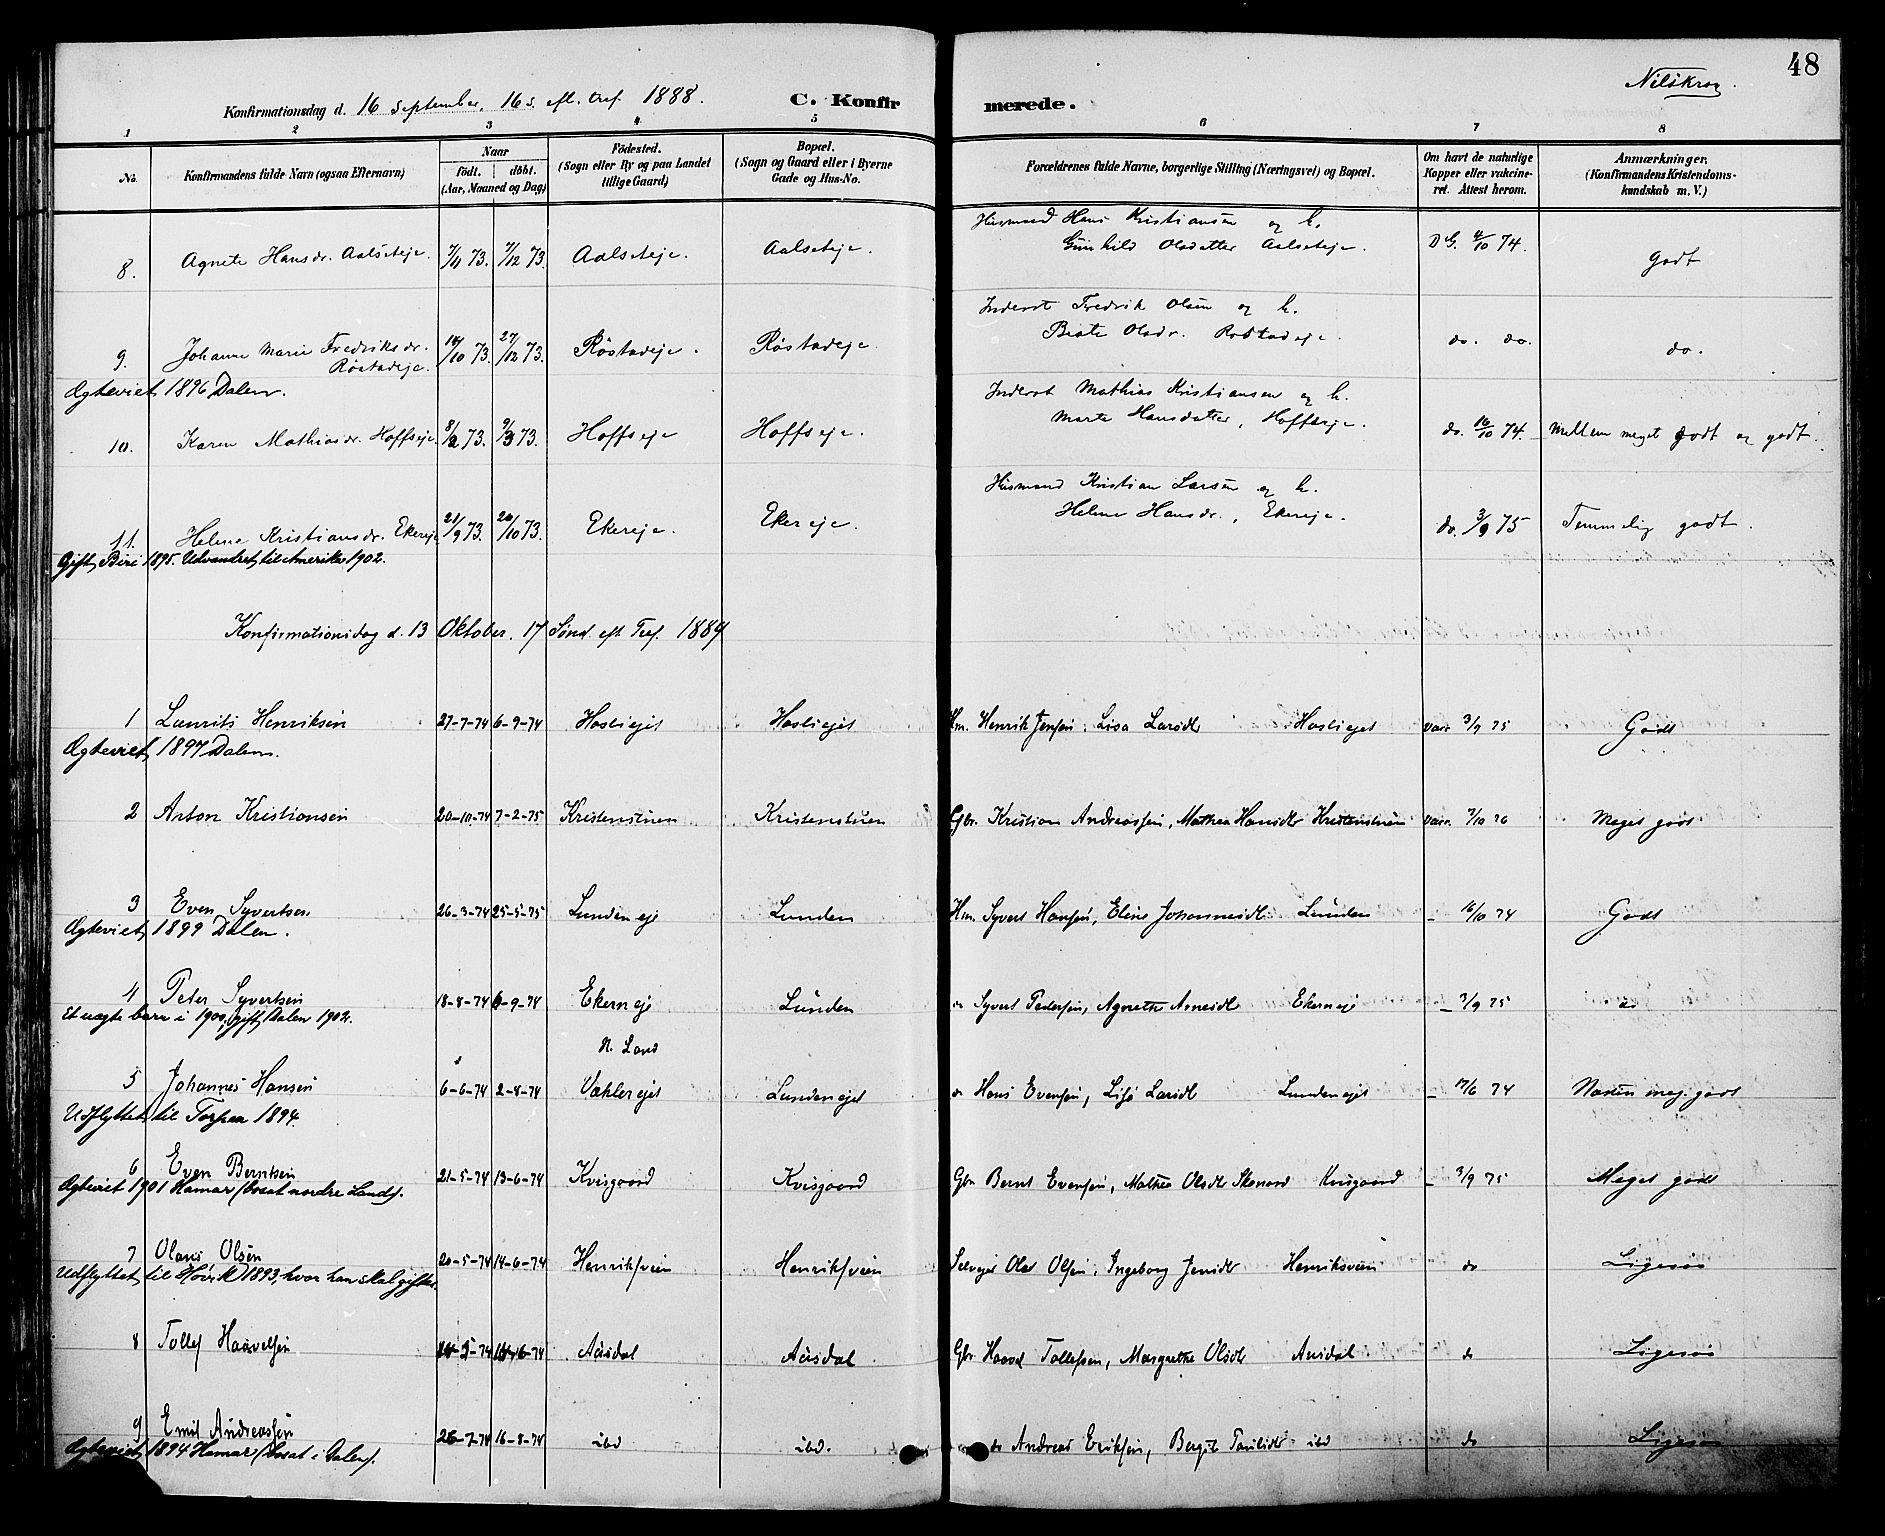 48
Nilskrog.
Konfirmationsdag d. 16 September, 16 s. eft. tref. 1888. C. Konfirmerede.
1 2 3 4 5 6 7 8
No. Konfirmandens fulde Navn (ogsaa Efternavn) Naar født. døbt. (Aar, Maaned og Dag) Fødested. (Sogn eller By og paa Landet tillige Gaard) Bopæl. (Sogn og Gaard eller i Byerne Gade og Hus-No. Forældrenes fulde Navne, borgerlige Stilling (Næringsvei) og Bopæl. Om havt de naturlige Kopper eller vakcineret. Attest herom. Anmærkninger. (Konfirmandens Kristendomskundskab m. V.)
Husmand Hans Kristiansen og h.
8. Agnete Hansdr. Aalseteje. 7/11 73. 7/12 73. Aalseteje. Aalseteje. Gunhild Olsdatter Aalseteje. D.G. 4/10 74. Godt
Inderst Fredrik Olsen og h.
9. Johanne Marie Fredriksdr. Røstadeje. 10/10 73. 27/12 73. Røstadeje. Røstadeje. Beate Olsdr. Røstadeje. do. do. do.
Ægteviet 1896 Dalen.
Inderst Mathias Kristiansen og h.
10. Karen Mathiasdr. Hoffseje. 8/2 73. 9/3 73. Hoffseje Hoffseje. Marte Hansdatter, Hoffseje. do. 16/10 74. Mellem meget godt og godt.
Husmand Kristian Larsen og h.
11. Helene Kristiansdr. Ekereje 21/9 73. 20/10 73. Ekereje. Ekereje. Helene Hansdr., Ekereje. do. 3/9 75 Temmelig godt.
Gift, Biri 1895. Udvandret til Amerika 1902.
Konfirmationsdag d. 13 Oktober, 17 Sönd. eft. Tref. 1889
1 Laurits Henriksen 27-7-74 6-9-74 Hasliejet Hasliejet Hm. Henrik Jensen, Lisa Larsdt Hasliejet Vacc. 3/9 75 Godt
Ægteviet, 1897 Dalen.
2 Anton Kristiansen 20-10-74 7-2-75 Kristenstuen Kristenstuen Gbr. Kristian Andreassen, Mathea Hansdt Kristenstuen Vacc. 7/10 76 Meget godt
3 Even Syvertsen 26-3-74 25-5-75 Lundeneje Lunden Hm. Syvert Hansen, Eline Johannesdt. Lunden - 16/10 74 Godt
Ægteviet, 1899 Dalen.
4 Peter Syvertsen 18-8-74 6-9-74 Ekerneje Lunden Syvert Pedersen, Agnethe Arnesdt Ekerneje - 3/9 75
Et uægte barn i 1900, gift, Dalen 1902.
N. Land
5 Johannes Hansen 6-6-74 2-8-74 Vahlerejet Lundenejet Hans Evensen, Lise Larsdt Lundenejet - 17/6 74 Næsten meg. godt
Udflyttet til Torpen 1894.
6 Even Berntsen 21-5-74 13-6-74 Kvisgaard Kvisgaard Gbr Bernt Evensen, Mathea Olsdt Kvisgaard - 3/9 75 Meget godt
Ægteviet 1901 Hamar (bosat nordre Land).
7 Olaus Olsen 20-5-74 14-6-74 Henriksveen Henriksveen Selvejer Olaf Olsen, Ingeborg Jensdt Henriksveen do Ligesaa
Udflyttet til Hövik 1893, hvor han skal giftes.
8 Tollef Haavelsen Aasdal Aasdal Gbr Haavel Tollefsen, Margrethe Olsdt Aasdal do Ligesaa
9 Emil Andreassen 26-7-74 16-8-74 ibd ibd. do Andreas Eriksen, ibd do Ligesaa
Ægteviet, 1894 Hamar (bosat i Dalen).